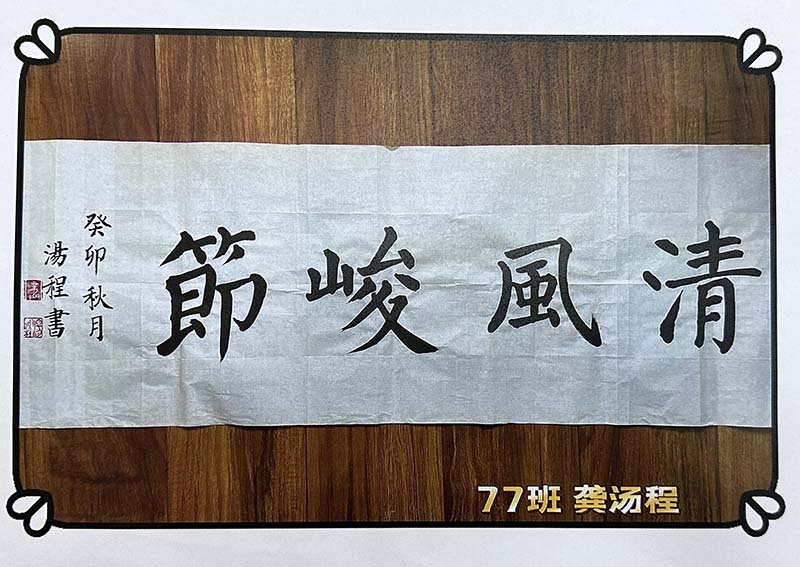 清風峻節
癸卯秋月
湯程書
77班 龚汤程